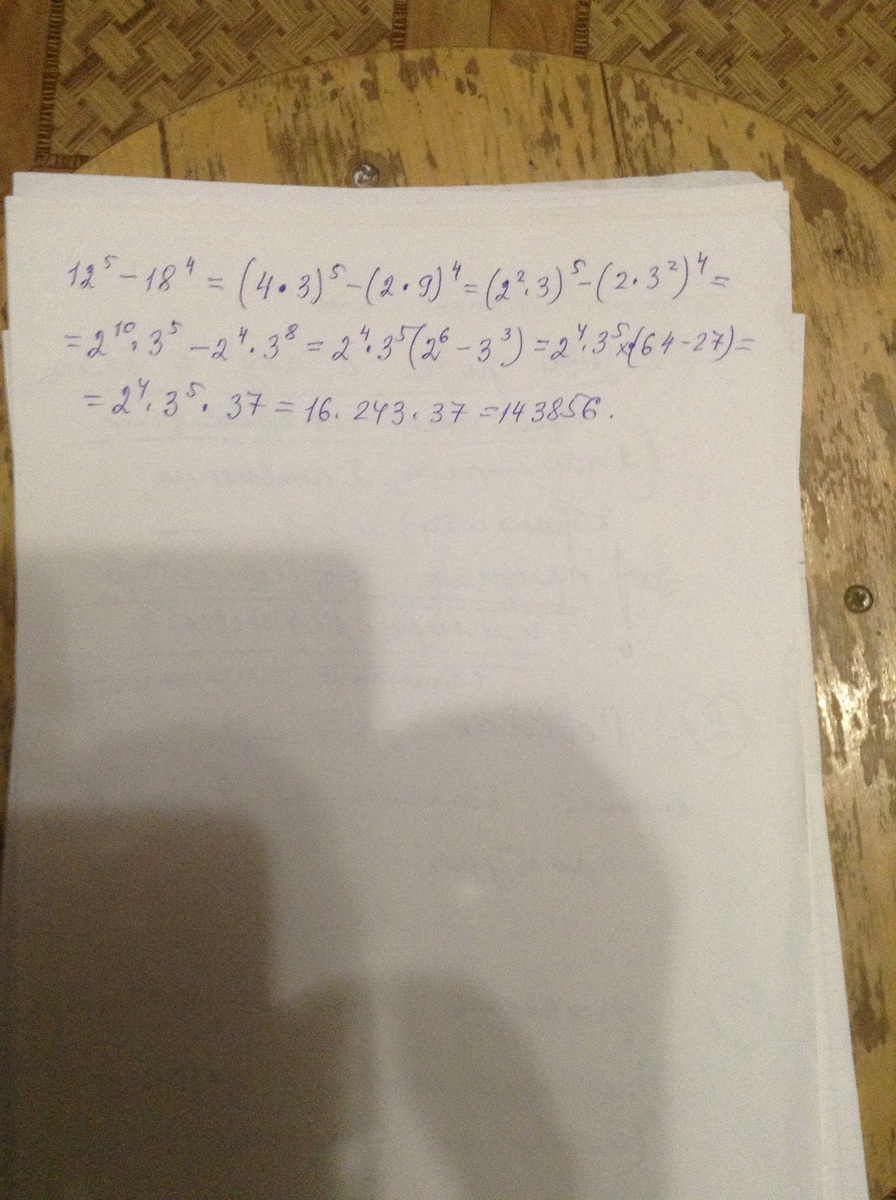 12⁵ − 18⁴ = (4 · 3)⁵ − (2 · 9)⁴ = (2² · 3)⁵ − (2 · 3²)⁴ =
= 2¹⁰ · 3⁵ − 2⁴ · 3⁸ = 2⁴ · 3⁵(2⁶ − 3³) = 2⁴ · 3⁵ × (64 − 27) =
= 2⁴ · 3⁵ · 37 = 16 · 243 · 37 = 143856.